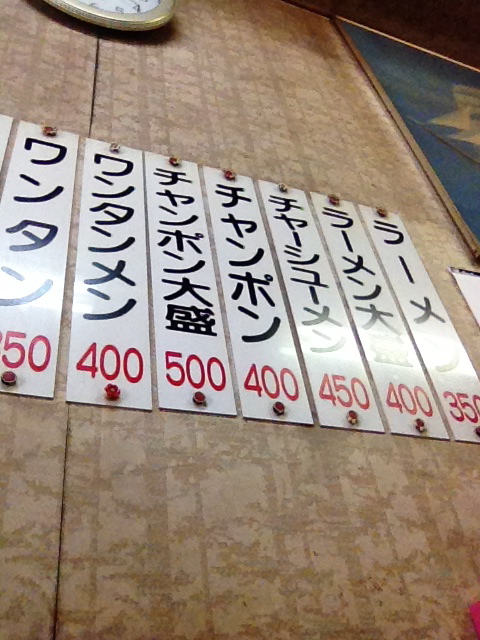 ラーメン
350
ラーメン大盛
400
チャーシューメン
450
チャンポン
400
チャンポン大盛
500
ワンタンメン
400
ワンタン
350